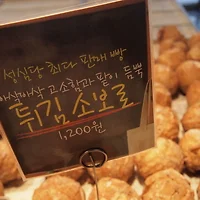 성심당 최다 판매 빵
아삭아삭 고소함과 팥이 듬뿍
튀김소보로
1,200원